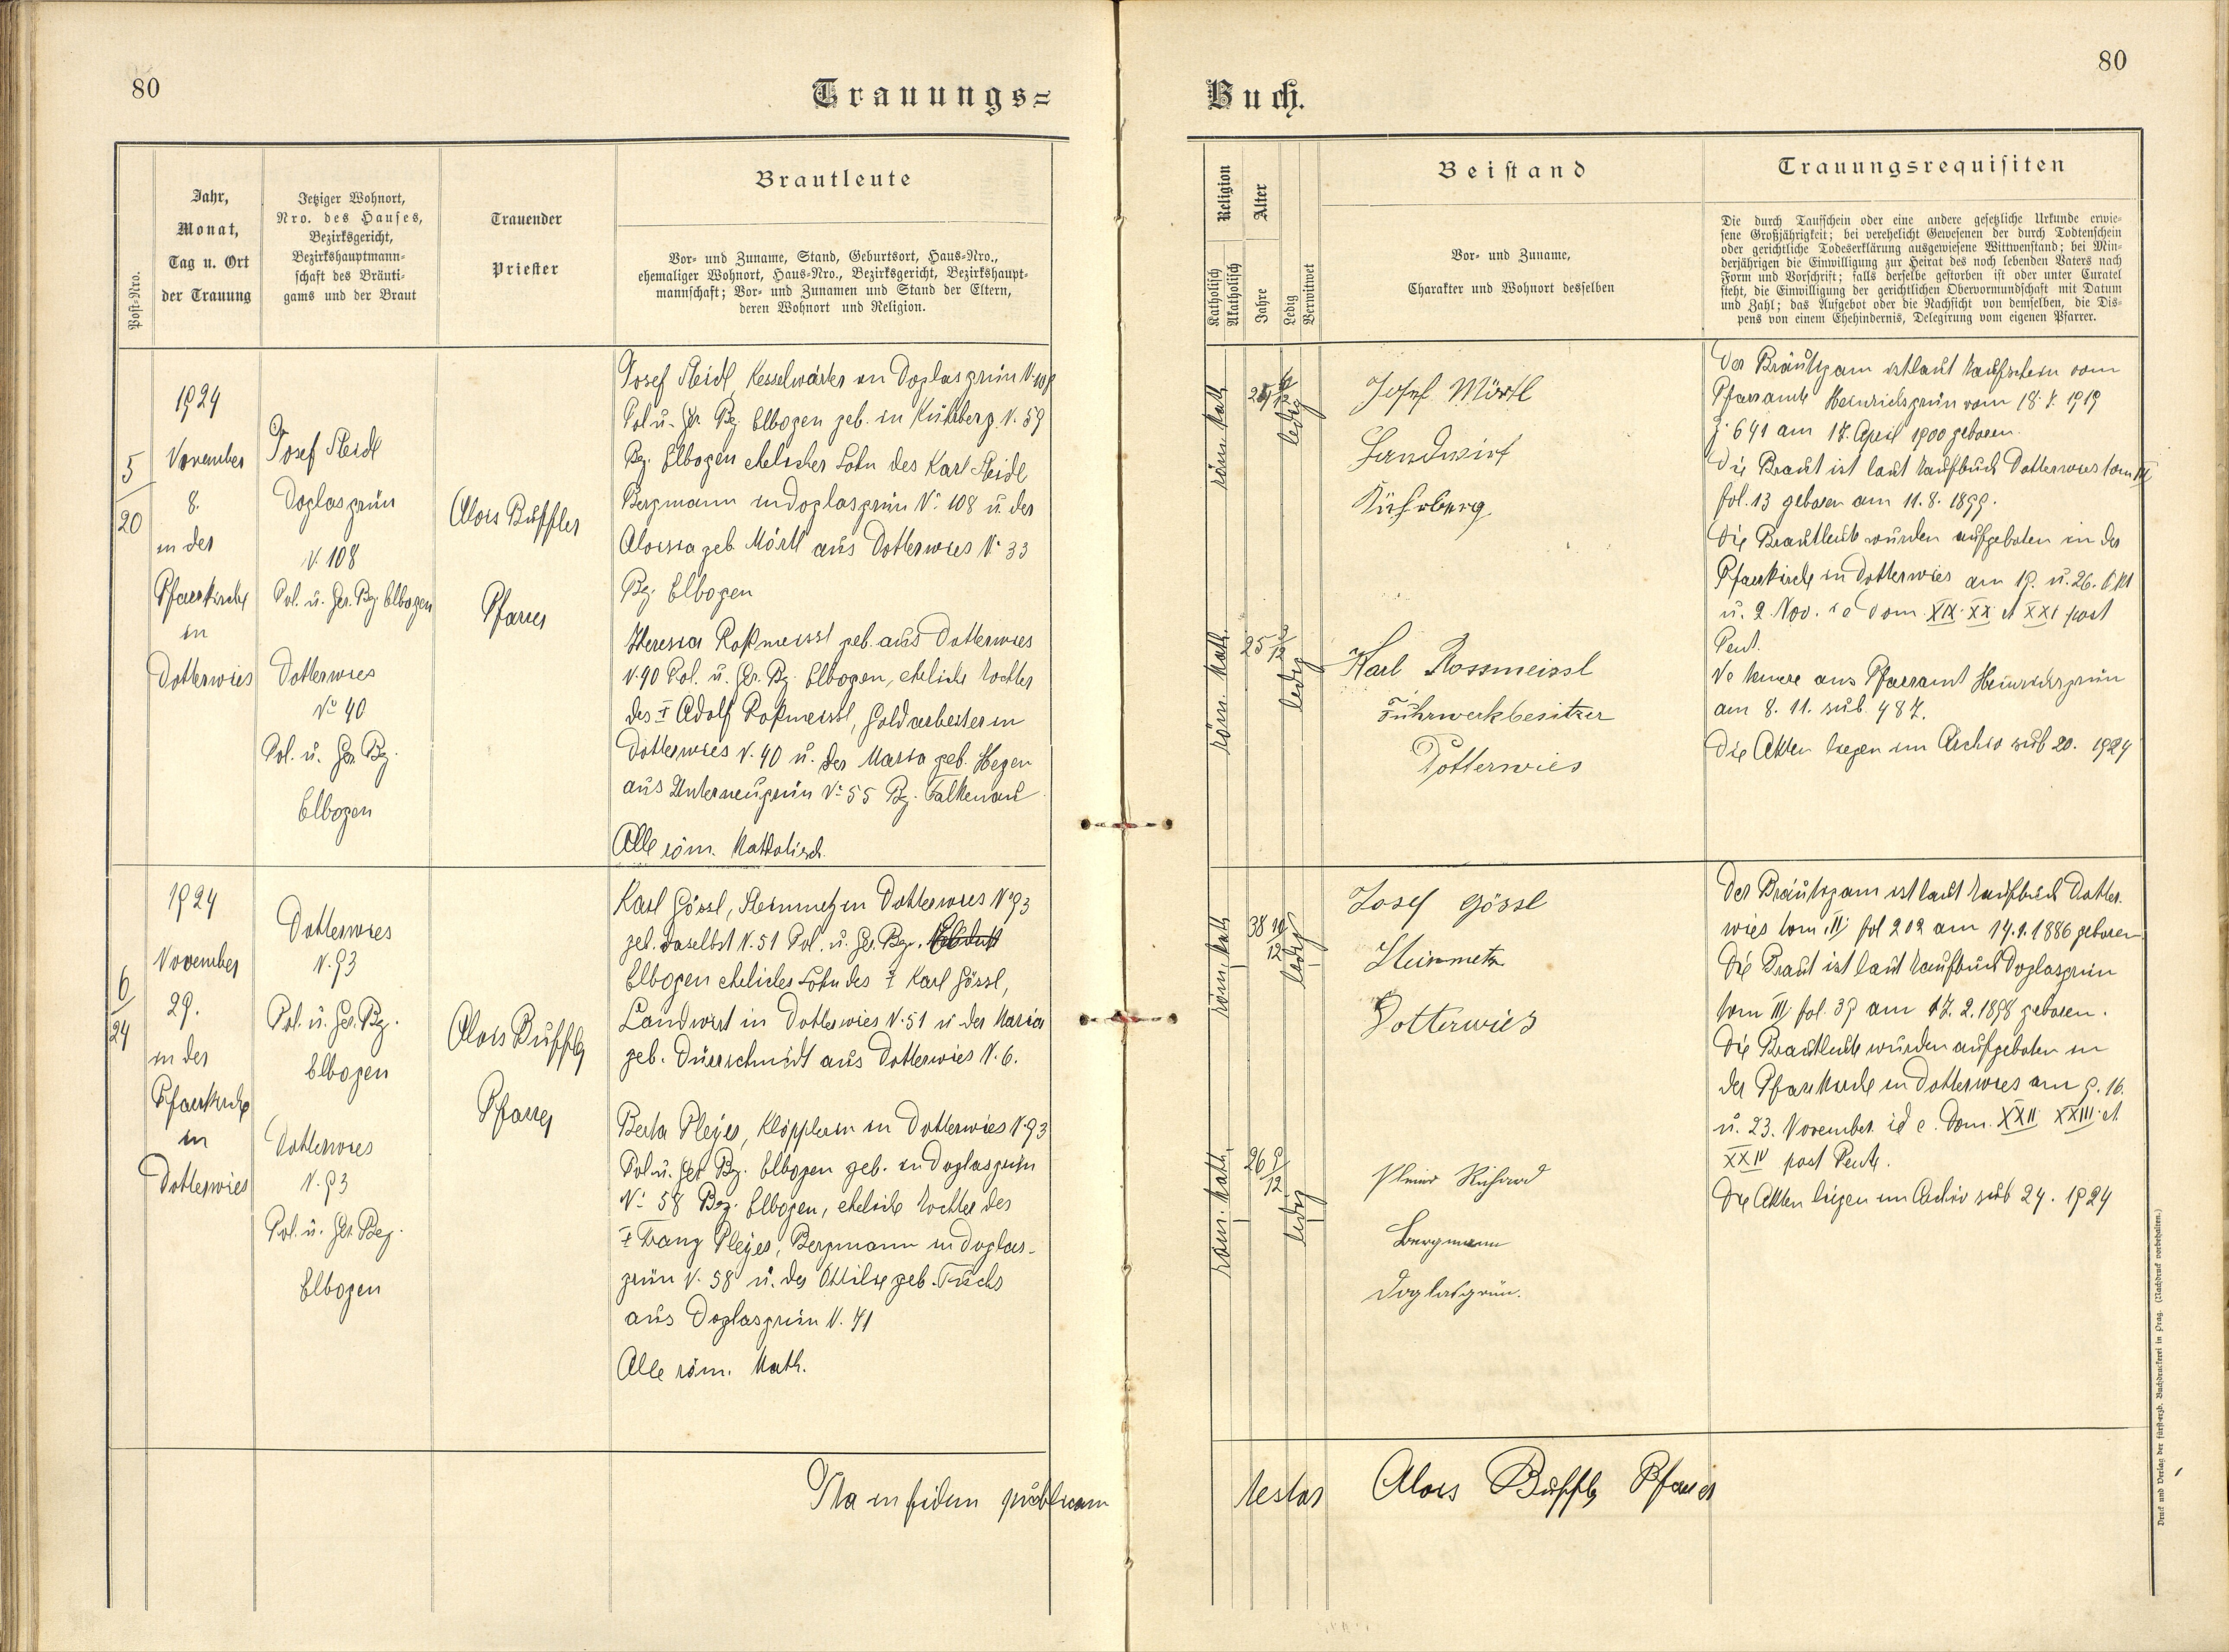 80
Trauungs=
Post-Nro.
Jahr,
Monat,
Tag u. Ort
der Trauung
Jetziger Wohnort,
Nro. des Hauses,
Bezirksgericht,
Bezirkshauptmann-
schaft des Bräuti-
gams und der Braut
Trauender
Priester
Brautleute
Vor- und Zuname, Stand, Geburtsort, Haus-Nro.,
ehemaliger Wohnort, Haus-Nro., Bezirksgericht, Bezirkshaupt-
mannschaft; Vor- und Zunamen und Stand der Eltern,
deren Wohnort und Religion.
5
20
1924
November
8.
in der
Pfarrkirche
in
Dotterwies
Josef Steidl
Doglasgrün
N. 108
Pol. u. Ger. Bz. Elbogen
Dotterwies
No 40
Pol. u. Ger. Bz.
Elbogen
Alois Buffler
Pfarrer
Josef Steidl, Kesselwärter in Doglasgrün N. 108
Pol u. Gr. Bz. Elbogen geb. in Kührberg N. 59
Bz. Elbogen ehelicher Sohn des Karl Steidl
Bergmann in Doglasgrün No 108 u. der
Aloisia geb. Mörtl aus Dotterwies No 33
Bz. Elbogen
Theresia Roßmeissl geb. aus Dotterwies
N. 40 Pol. u. Gr. Bz. Elbogen, eheliche Tochter
des † Adolf Roßmeissl, Goldarbeiter in
Dotterwies N. 40 u. der Maria geb. Hegen
aus Unterneugrün No 55 Bz. Falkenau
Alle röm. Katholisch.
6
24
1924
November
29.
in der
Pfarrkirche
in
Dotterwies
Dotterwies
N. 93
Pol. u. Ger. Bz.
Elbogen
Dotterwies
N. 93
Pol. u. Ger. Bez.
Elbogen
Alois Buffler
Pfarrer
Karl Gössl, Steinmetz in Dotterwies No 93
geb. daselbst N. 51 Pol. u. Ger. Bz.
Elbogen ehelicher Sohn des † Karl Gössl,
Landwirt in Dotterwies N. 51 u der Maria
geb. Dürrschmidt aus Dotterwies N. 6.
Berta Pleyer, Klöpplerin in Dotterwies N. 93
Pol. u. Ger Bz. Elbogen geb. in Doglasgrün
No 58 Bez. Elbogen, eheliche Tochter des
† Franz Pleyer, Bergmann in Doglas-
grün N. 58 u. der Ottilie geb. Fuchs
aus Doglasgrün N. 41
Alle röm. Kath.
Ita in fidem publicam
80
Buch.
Religion
Katholisch
Akatholisch
Alter
Jahre
Ledig
Verwitwet
Beistand
Vor- und Zuname,
Charakter und Wohnort desselben
Trauungsrequisiten
Die durch Taufschein oder eine andere gesetzliche Urkunde erwie-
sene Großjährigkeit; bei verehelicht Gewesenen der durch Todtenschein
oder gerichtliche Todeserklärung ausgewiesene Wittwenstand; bei Min-
derjährigen die Einwilligung zur Heirat des noch lebenden Vaters nach
Form und Vorschrift; falls derselbe gestorben ist oder unter Curatel
steht, die Einwilligung der gerichtlichen Obervormundschaft mit Datum
und Zahl; das Aufgebot oder die Nachsicht von demselben, die Dis-
pens von einem Ehehindernis, Delegirung vom eigenen Pfarrer.
röm. kath.
ledig
Josef Mörtl
Landwirt
Kührberg
röm. kath.
25 3/12
ledig
Karl Rossmeissl
Fuhrwerkbesitzer
Dotterwies
Der Bräutigam ist laut Taufschein vom
Pfarramte Heinrichsgrün vom 18. X. 1919
Z. 641 am 17. April 1900 geboren.
Die Braut ist laut Taufbuch Dotterwies tom III
fol. 13 geboren am 11. 8. 1899.
Die Brautleute wurden aufgeboten in der
Pfarrkirche in Dotterwies am 19. u. 26. Okt
u. 2. Nov. i e Dom XIX XX et XXI post
Pent.
aus Pfarramt Heinrichsgrün
am 8. 11. sub. 487.
Die Akten liegen im Archiv sub 20. 1924
röm. kath.
38 10/12
ledig
Josef Gössl
Steinmetz
Dotterwies
röm. kath.
26 9/12
ledig
Pleier Richard
Bergmann
Doglasgrün.
Der Bräutigam ist laut Taufbuch Dotter-
wies tom. II fol 202 am 14. 1. 1886 geboren
Die Braut ist laut Taufbuch Doglasgrün
tom III fol. 39 am 17. 2. 1898 geboren.
Die Brautleute wurden aufgeboten in
der Pfarrkirche in Dotterwies am 9. 16.
u. 23. November id e. Dom. XXII XXIII et
XXIV post Pente.
Die Akten liegen im Archiv sub 24. 1924
testor Alois Buffler Pfarrer
Druck und Verlag der fürst-erzb. Buchdruckerei in Prag. (Nachdruck vorbehalten.)